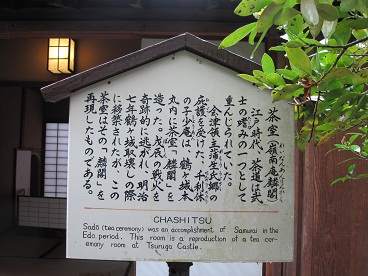 茶室(嶺南庵麟閣)
れいなんあんりんかく
江戸時代、茶道は武
士の嗜みの一つとして
重んじられていた。
会津領主蒲生氏郷の
庇護を受けた、千利休
の子少庵は、鶴ヶ城本
丸内に茶室「麟閣」を
造った。戊辰の戦火を
奇跡的に逃がれ、明治
七年鶴ヶ城取壊しの際
に移築されたが、この
茶室はその「麟閣」を
再現したものである。
CHASHITSU
Sadō (tea ceremony) was an accomplishment of Samurai in the
Edo period. This room is a reproduction of a tea cer-
emony room at Tsuruga Castle.